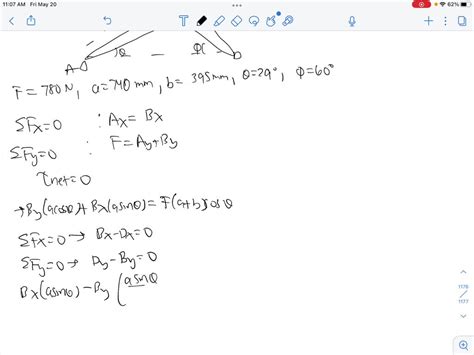 11:07 AM Fri May 20
62%
θ φ
A D
F = 780N, a = 740mm, b = 395mm, θ=29°, φ=60°
ΣFx=0 : Ax = Bx
ΣFy=0 : F = Ay+By
τnet=0
→ By(acosθ)+Bx(asinθ) = F(a+b)cosθ
ΣFx=0 → Bx-Dx=0
ΣFy=0 → Dy-By=0
Bx(asinθ) - By (asinθ
1178
1177